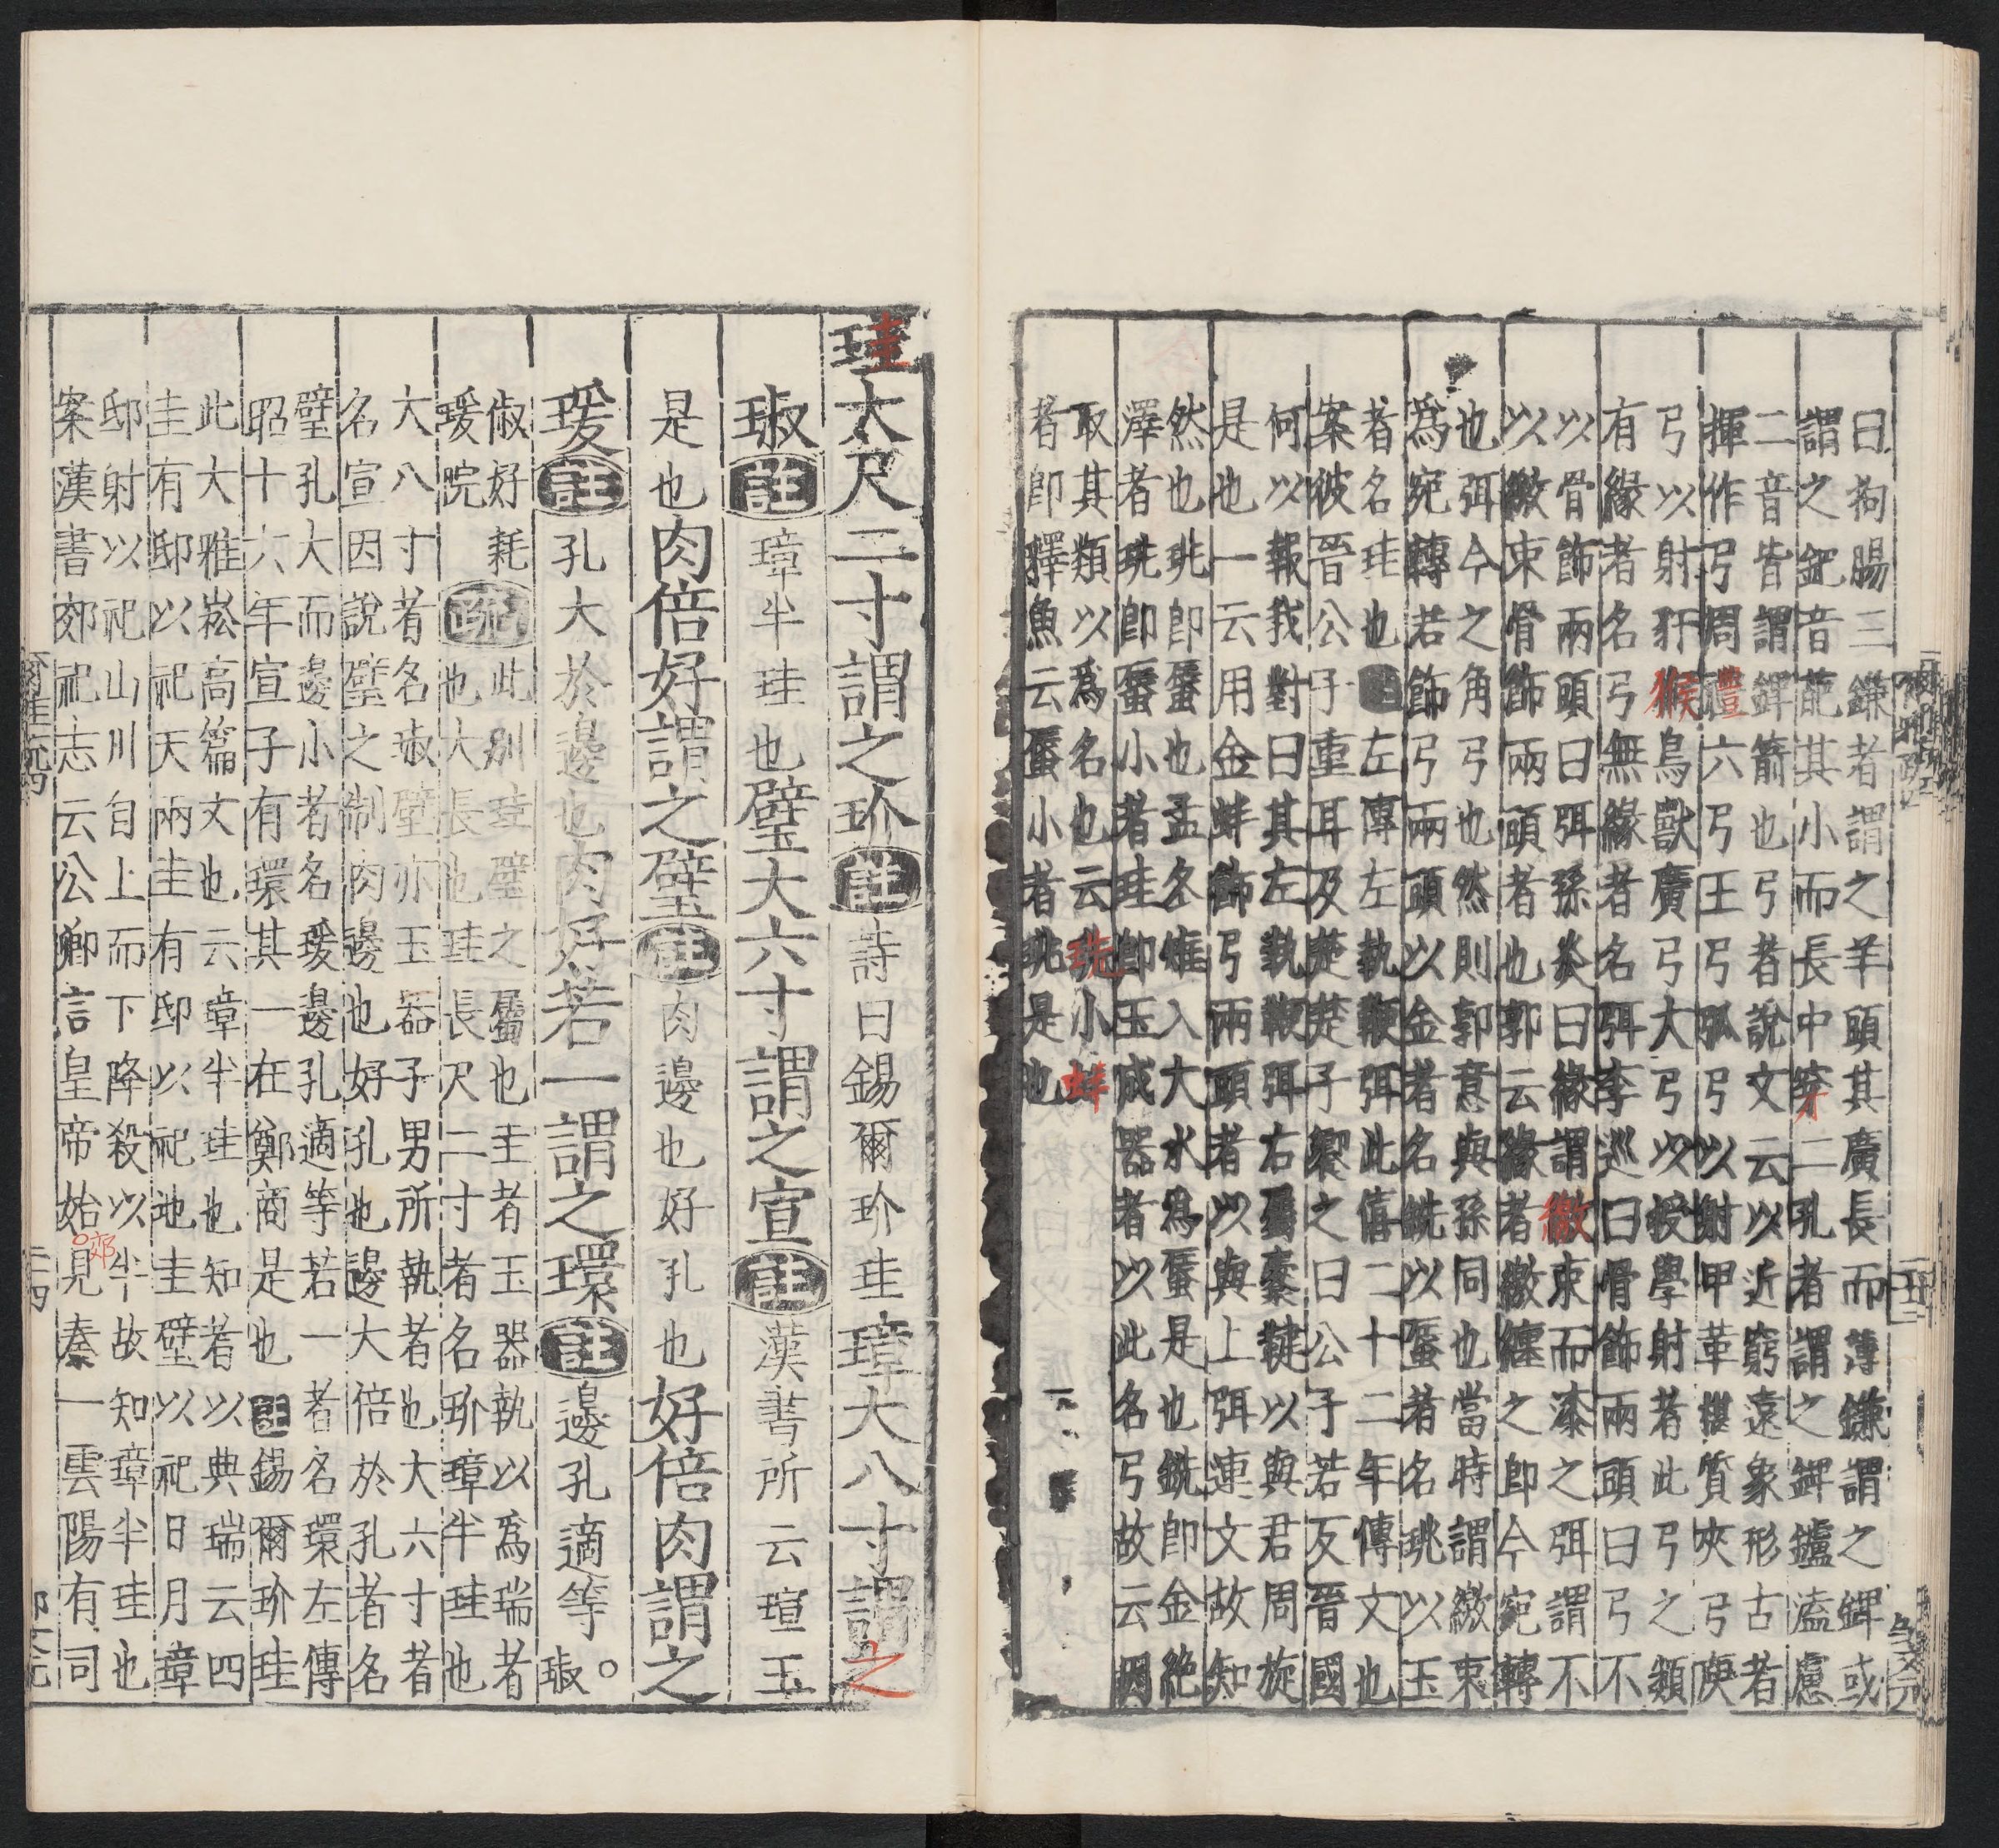 曰狗腸三鎌者謂之羊頭其廣長而薄鎌謂之錍或
謂之鈀音葩其小而長中穿二孔者謂之錍鑪溘慮
二音皆謂錍箭也弓者說文云以近窮遠象形古者
揮作弓周禮六弓王弓弧弓以射甲革椹質夾弓庾
弓以射犴猴鳥獸廣弓大弓以授學射者此弓之類
有緣者名弓無緣者名弭李巡曰骨飾兩頭曰弓不
以骨飾兩頭曰弭孫炎曰緣謂繳束而漆之弭謂不
以繳束骨飾兩頭者也郭云緣者繳纏之即今宛轉
也弭今之角弓也然則郭意與孫同也當時謂繳束
爲宛轉若飾弓兩頭以金者名銑以蜃者名珧以玉
者名珪也註左傳左執鞭弭此僖二十二年傳文也
案彼晉公子重耳及楚楚子饗之曰公子若反晉國
何以報我對曰其左執鞭弭右屬櫜鞬以與君周旋
是也一云用金蚌飾弓兩頭者以與上弭連文故知
然也珧即蜃也孟冬雉入大水爲蜃是也銑即金絶
澤者珧即蜃小者珪即玉成器者以此名弓故云因
取其類以爲名也云珧小蚌
者即釋魚云蜃小者珧是也
珪大尺二寸謂之玠註詩曰錫爾玠珪璋大八寸謂之
琡註璋半珪也璧大六寸謂之宣註漢書所云瑄玉
是也肉倍好謂之璧註肉邊也好孔也好倍肉謂之
瑗註孔大於邊也肉好若一謂之環註邊孔適等。琡
俶好耗疏此別珪璧之屬也王者玉器執以爲瑞者
瑗院也大長也珪長尺二寸者名玠璋半珪也
大八寸者名琡璧亦玉器子男所執者也大六寸者
名宣因說璧之制肉邊也好孔也邊大倍於孔者名
璧孔大而邊小者名瑗邊孔適等若一者名環左傳
昭十六年宣子有環其一在鄭商是也註錫爾玠珪
此大雅崧高篇文也云璋半珪也知者以典瑞云四
圭有邸以祀天兩圭有邸以祀地圭璧以祀日月璋
邸射以祀山川自上而下降殺以半故知璋半珪也
案漢書郊祀志云公卿言皇帝始見泰一雲陽有司
郊